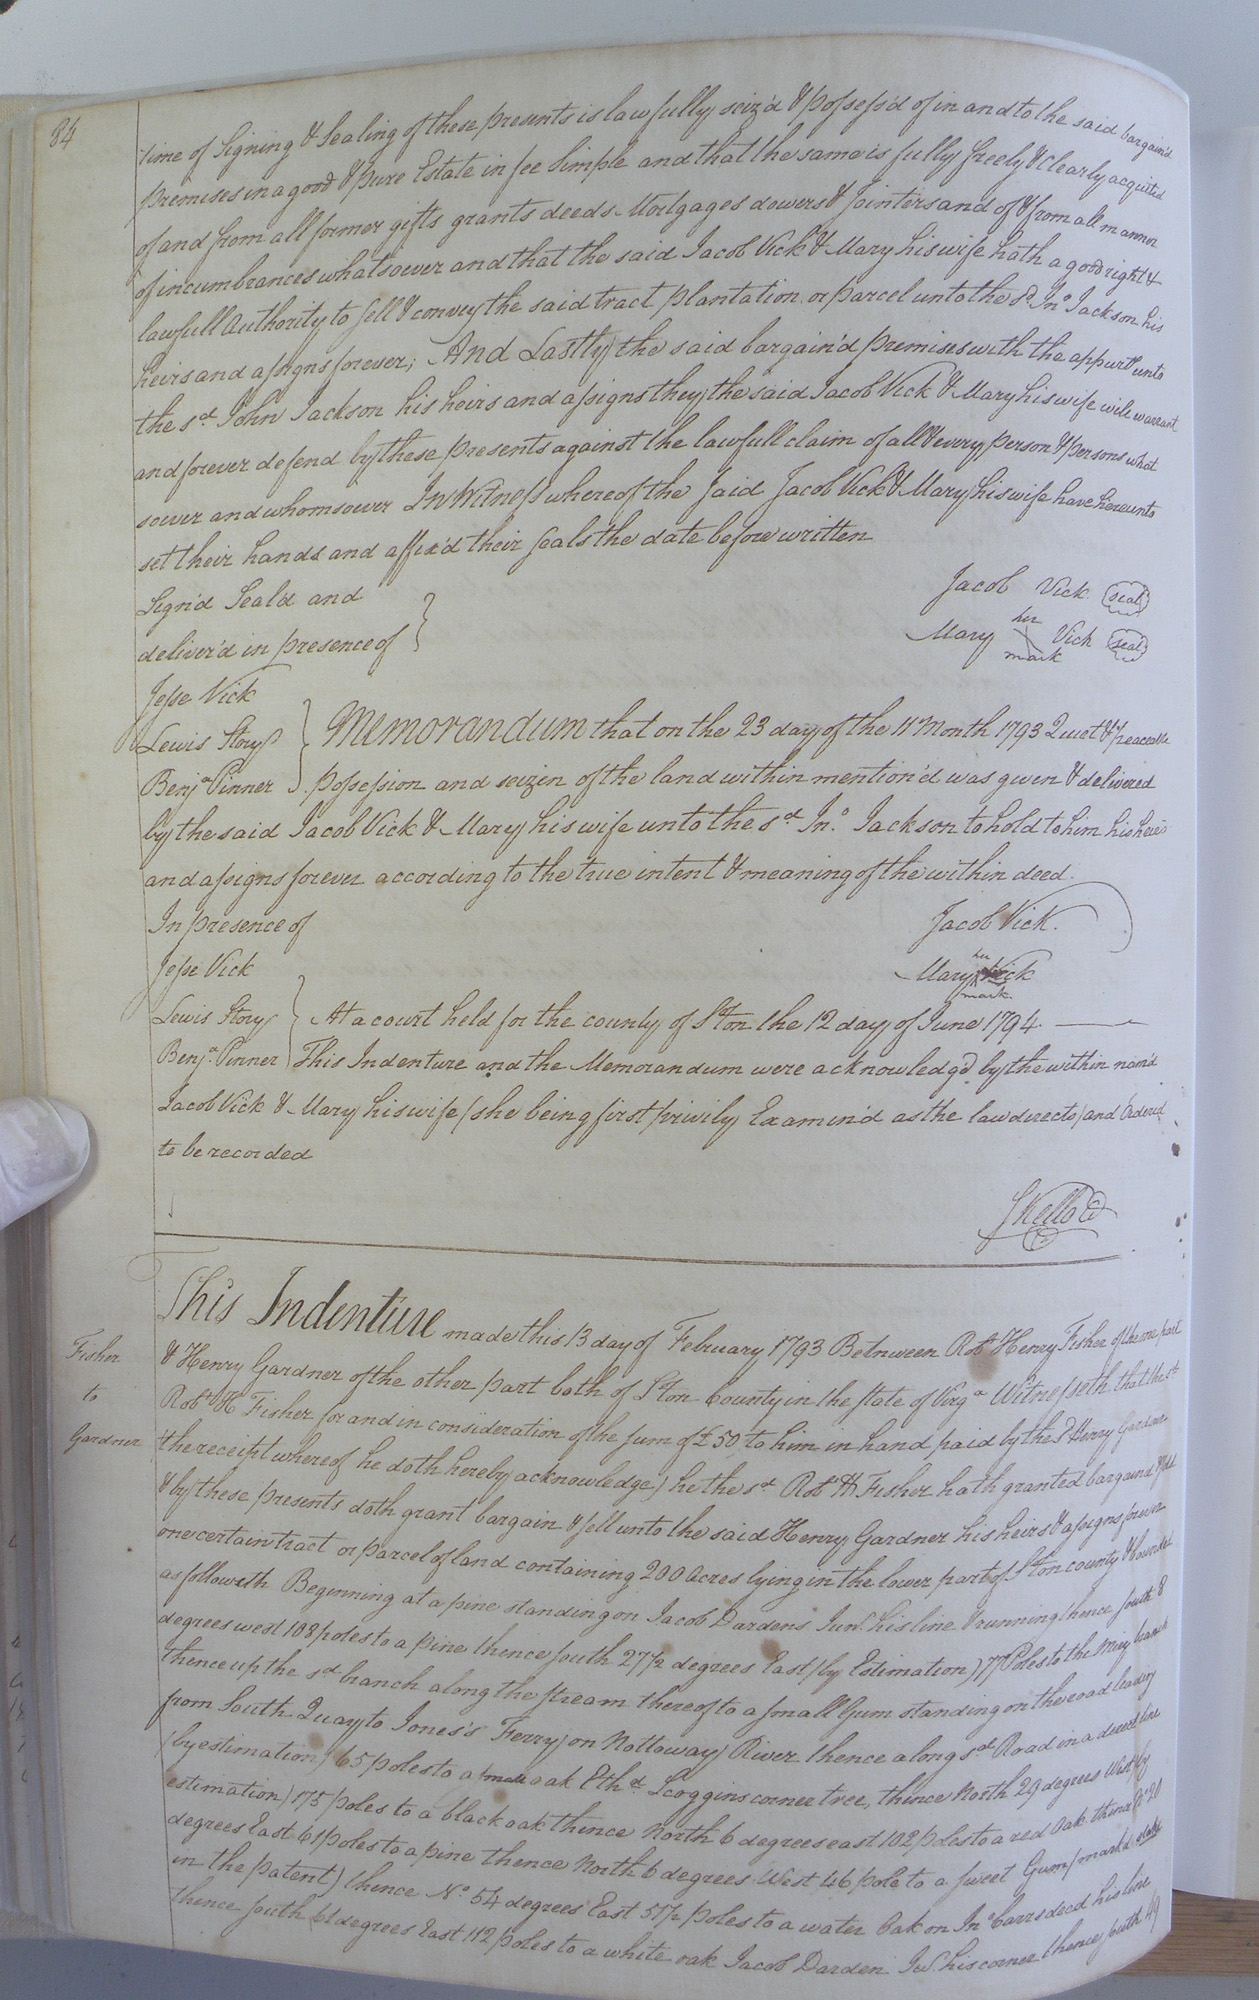 84
time of Signing & Sealing of these presents is lawfully seiz'd & possess'd of in and to the said bargain'd
premises in a good & pure Estate in fee Simple and that the same is fully freely & clearly acquited
of and from all former gifts grants deeds Mortgages dowers & Jointers and of & from all manner
of incumbrances whatsoever and that the said Jacob Vick & Mary his wife hath a good right &
lawfull Authority to sell & convey the said tract plantation or parcel unto the sd. Jno. Jackson his
heirs and assigns forever; And Lastly the said bargain'd premises with the appurts unto
the sd. John Jackson his heirs and assigns they the said Jacob Vick & Mary his wife will warrant
and forever defend by these presents against the lawfull claim of all & every person & persons what
soever and whomsoever In Witness whereof the said Jacob Vick & Mary his wife have hereunto
set their hands and affix'd their seals the date before written
Sign'd Seal'd and
deliver'd in presence of
Jacob Vick seal
Mary her mark Vick seal
Jesse Vick
Lewis Story
Benja. Pinner
Memorandum that on the 23 day of the 11 Month 1793 Quiet & peaceable
possession and seizen of the land within mention'd was given & delivered
by the said Jacob Vick & Mary his wife unto the sd. Jno. Jackson to hold to him his heirs
and assigns forever according to the true intent & meaning of the within deed.
In presence of
Jacob Vick.
Jesse Vick
Mary her mark Vick
Lewis Story
Benja. Pinner
At a court held for the county of S'ton the 12 day of June 1794
This Indenture and the Memorandum were acknowledg'd by the within nam'd
Jacob Vick & Mary his wife (she being first privily Examin'd as the law directs) and Ordered
to be recorded
S Kello
This Indenture made this 13 day of February 1793 Between Robt. Henry Fisher of the one part
Fisher
to
Gardner
& Henry Gardner of the other part both of S'ton County in the state of Virga. Witnesseth that the sd.
Robt. H Fisher for and in consideration of the sum of £50 to him in hand paid by the sd. Henry Gardner
(the receipt whereof he doth hereby acknowledge) he the sd. Robt. H Fisher hath granted bargaind & sold
& by these presents doth grant bargain & sell unto the said Henry Gardner his heirs & assigns forever
one certain tract or parcel of land containing 200 acres lying in the lower part of S'ton county & bounded
as followeth Beginning at a pine standing on Jacob Dardens Junr. his line & running thence South 8
degrees west 108 poles to a pine thence South 27½ degrees East (by Estimation) 77 Poles to the Miry branch
thence up the sd. branch along the stream thereof to a small Gum standing on the road leading
from South Quay to Jones's Ferry on Nottoway River thence along sd. Road in a direct line
(by estimation) 65 poles to a small oak Ethd. Scoggins corner tree, thence North 29 degrees West (by
estimation) 175 poles to a black oak thence North 6 degrees east 102 poles to a red Oak thence No. 20
degrees East 61 poles to a pine thence North 6 degrees West 46 pole to a sweet Gum (mark'd
in the patent) thence No. 54 degrees East 57½ poles to a water Oak on Jno. Carrs deced his line
thence South 61 degrees East 112 poles to a white oak Jacob Darden Jur. his corner thence South 49